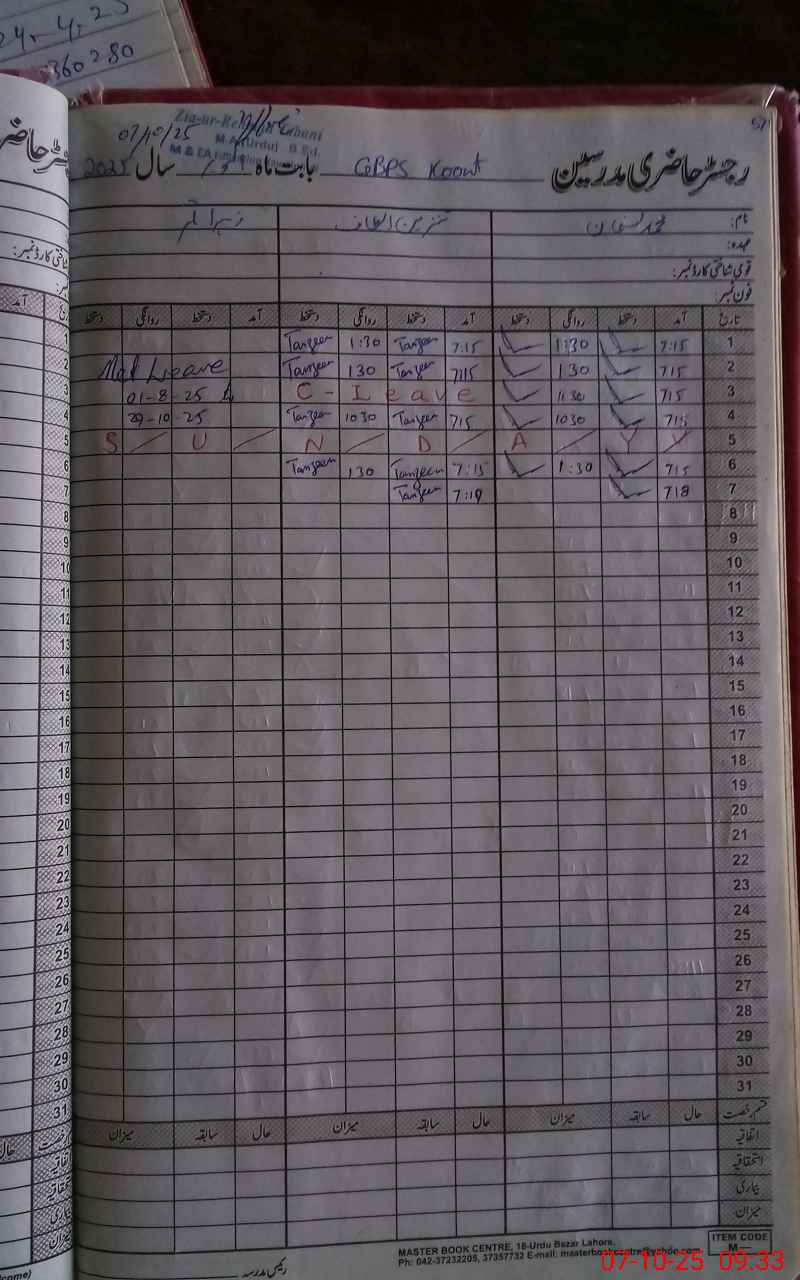 24.4.25
360280
57
07/10/25
M.A (Urdu) B.Ed.
رجسٹر حاضری مدرسین GBPS Koont بابت ماہ سال 2025
نام:
عہدہ:
قومی شناختی کارڈ نمبر:
فون نمبر:
تاریخ آمد دستخط روانگی دستخط آمد دستخط روانگی دستخط آمد دستخط روانگی دستخط
1 7:15 1:30 7:15 Tanzeem 1:30 Tanzeem
2 715 130 7115 Tanzeem 130 Tanzeem Mat Leave
3 715 1130 C - Leave 01-8-25
4 715 1030 715 Tanzeem 1030 Tanzeem 29-10-25
5 S U N D A Y
6 715 1:30 7:15 Tanzeem 130 Tanzeem
7 718 7:19 Tanzeem
8
9
10
11
12
13
14
15
16
17
18
19
20
21
22
23
24
25
26
27
28
29
30
31
قسم رخصت حال سابقہ میزان حال سابقہ میزان حال سابقہ میزان
اتفاقیہ
استحقاقیہ
بیماری
میزان
رئیس مدرسہ
MASTER BOOK CENTRE, 16-Urdu Bazar Lahore.
Ph: 042-37232205, 37357732 E-mail: masterbookcentre@yahoo.com
ITEM CODE
M—
07-10-25 09:33